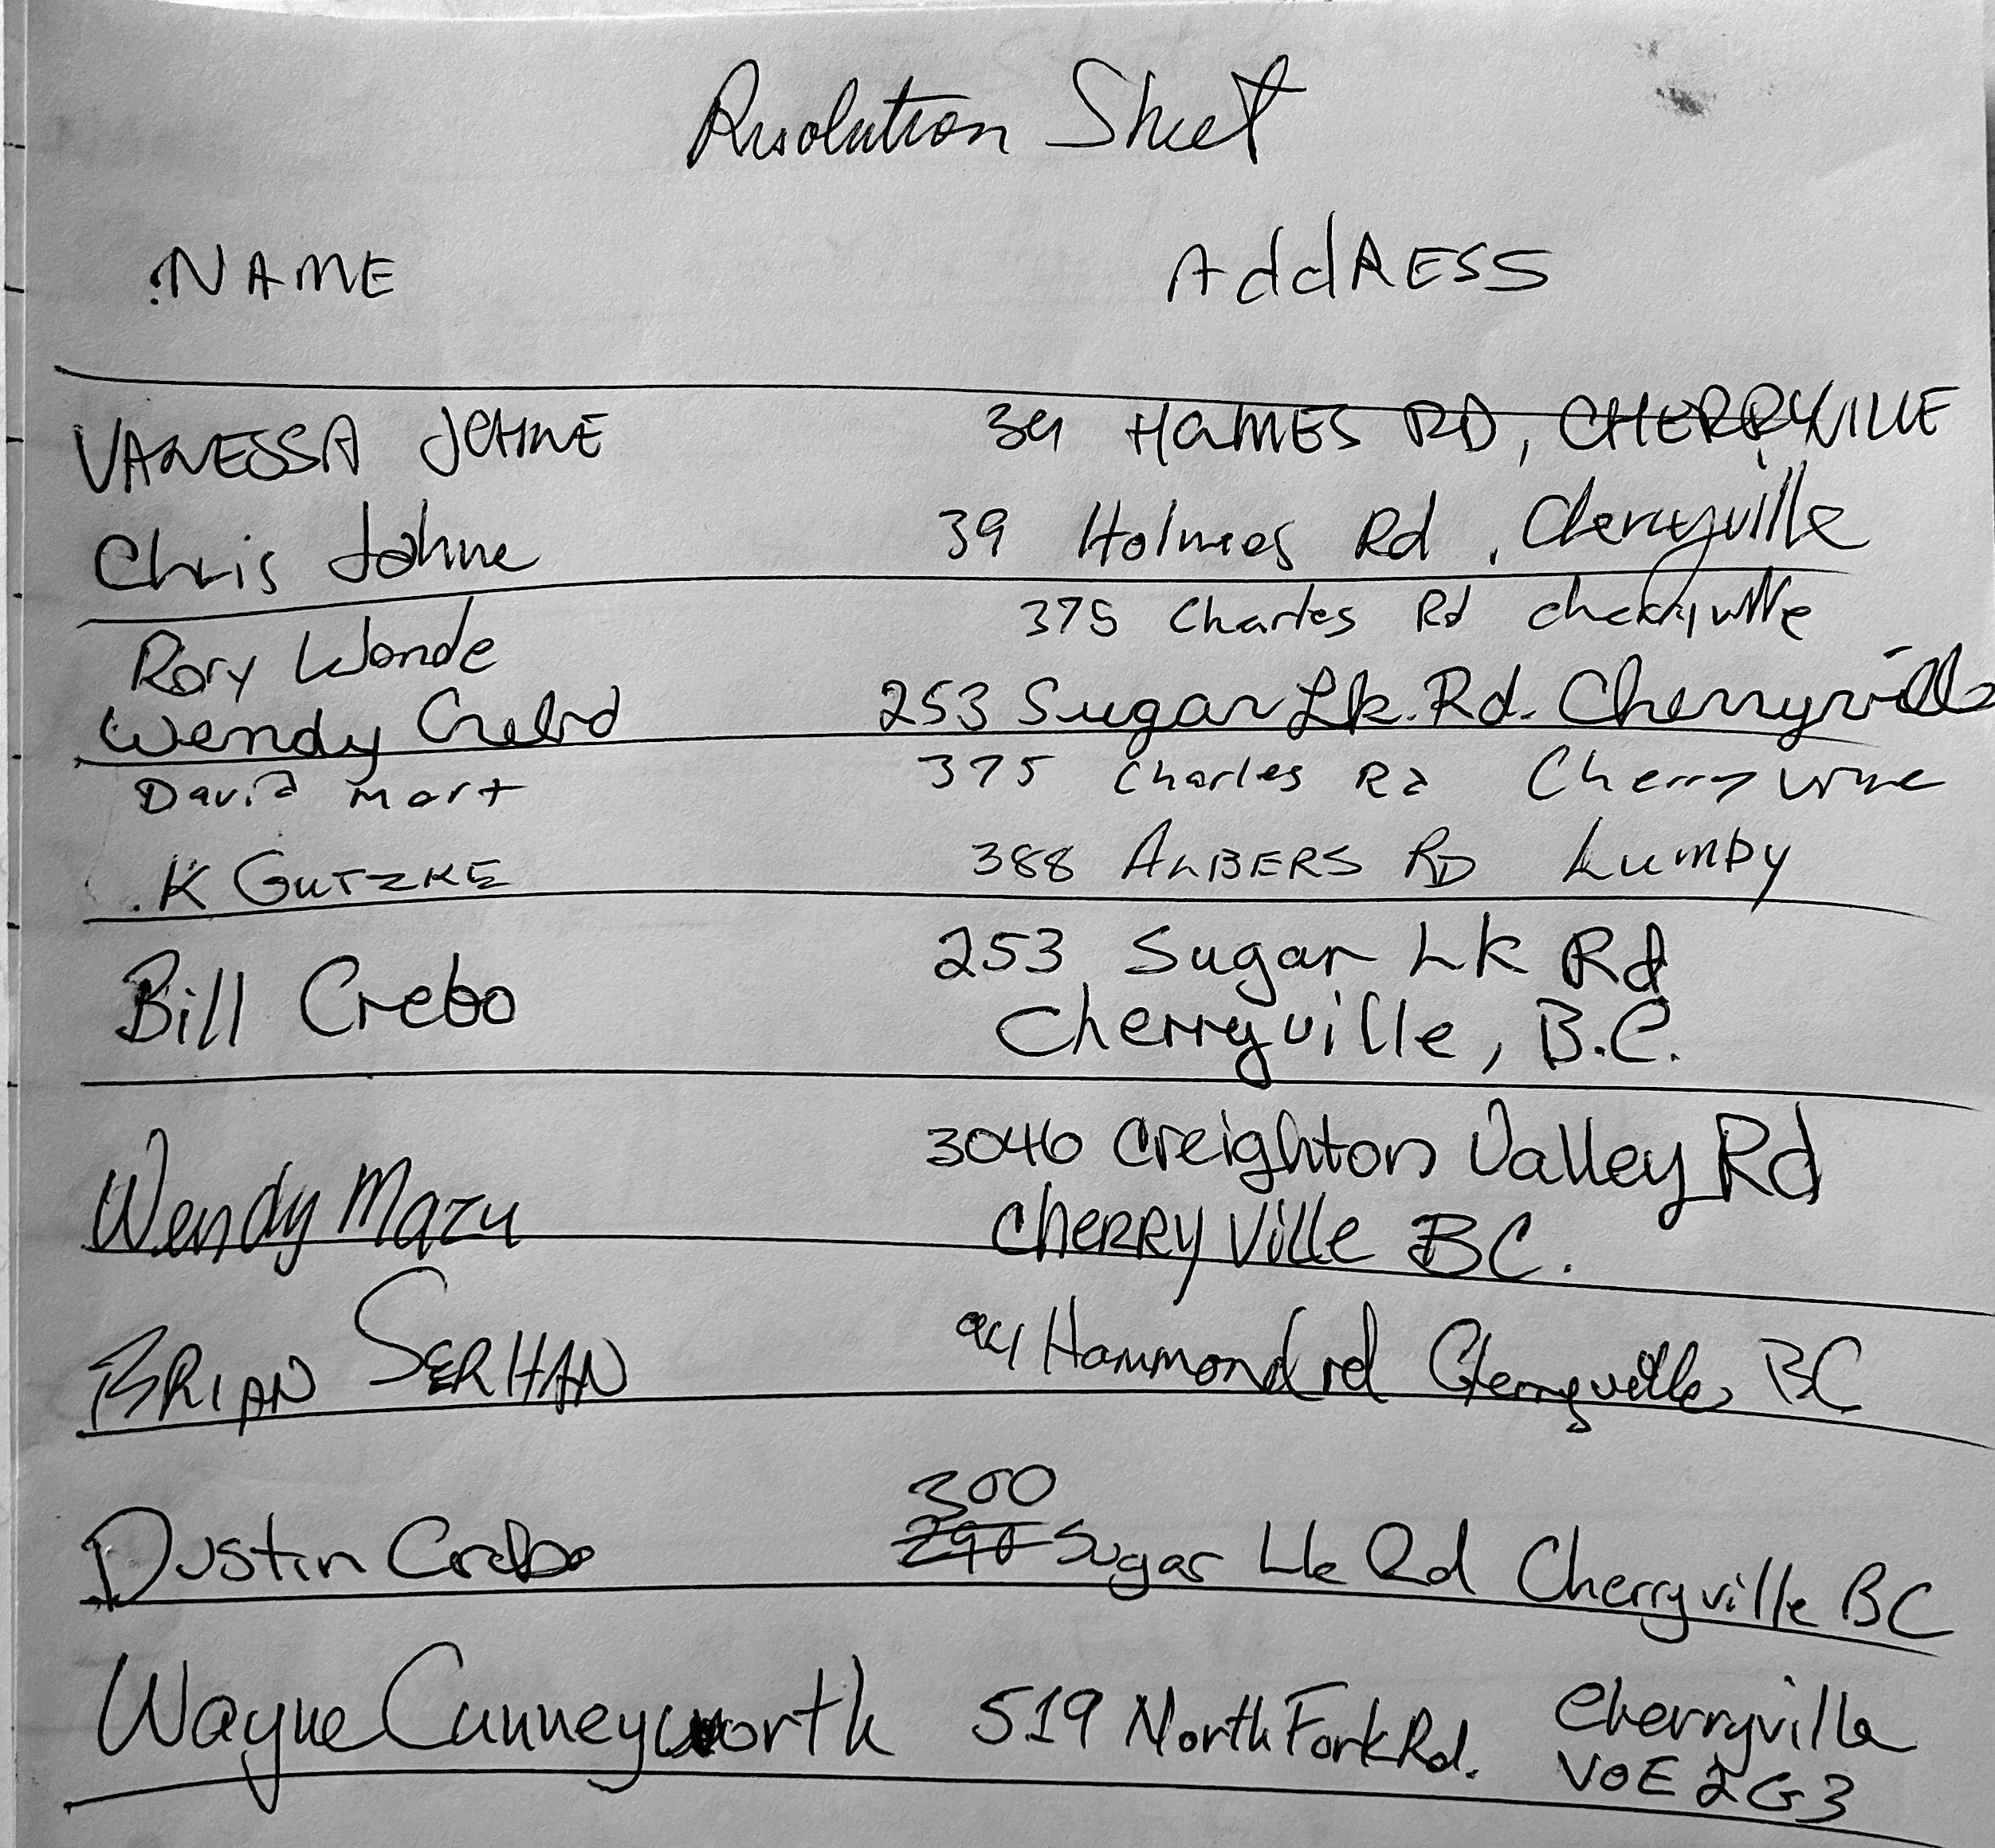 Resolution Sheet
NAME AddRESS
VANESSA JOHNE 39 HOLMES RD, CHERRYVILLE
Chris Johne 39 Holmes Rd, Cherryville
Rory Wonde 375 Charles Rd cherryville
Wendy 253 Sugar Lk. Rd. Cherryville
David Mort 375 Charles Rd Cherryville
K GUTZKE 388 ALBERS RD Lumby
Bill Crebo 253 Sugar Lk Rd
Cherryville, B.C.
Wendy Mazu 3046 Creighton Valley Rd
CHERRYVille BC.
BRIAN SERHAN 94 Hammond rd Cherryville, BC
300
Dustin Crebo Sugar Lk Rd Cherryville BC
Wayne Cunneyworth 519 North Fork Rd. Cherryville
V0E 2G3